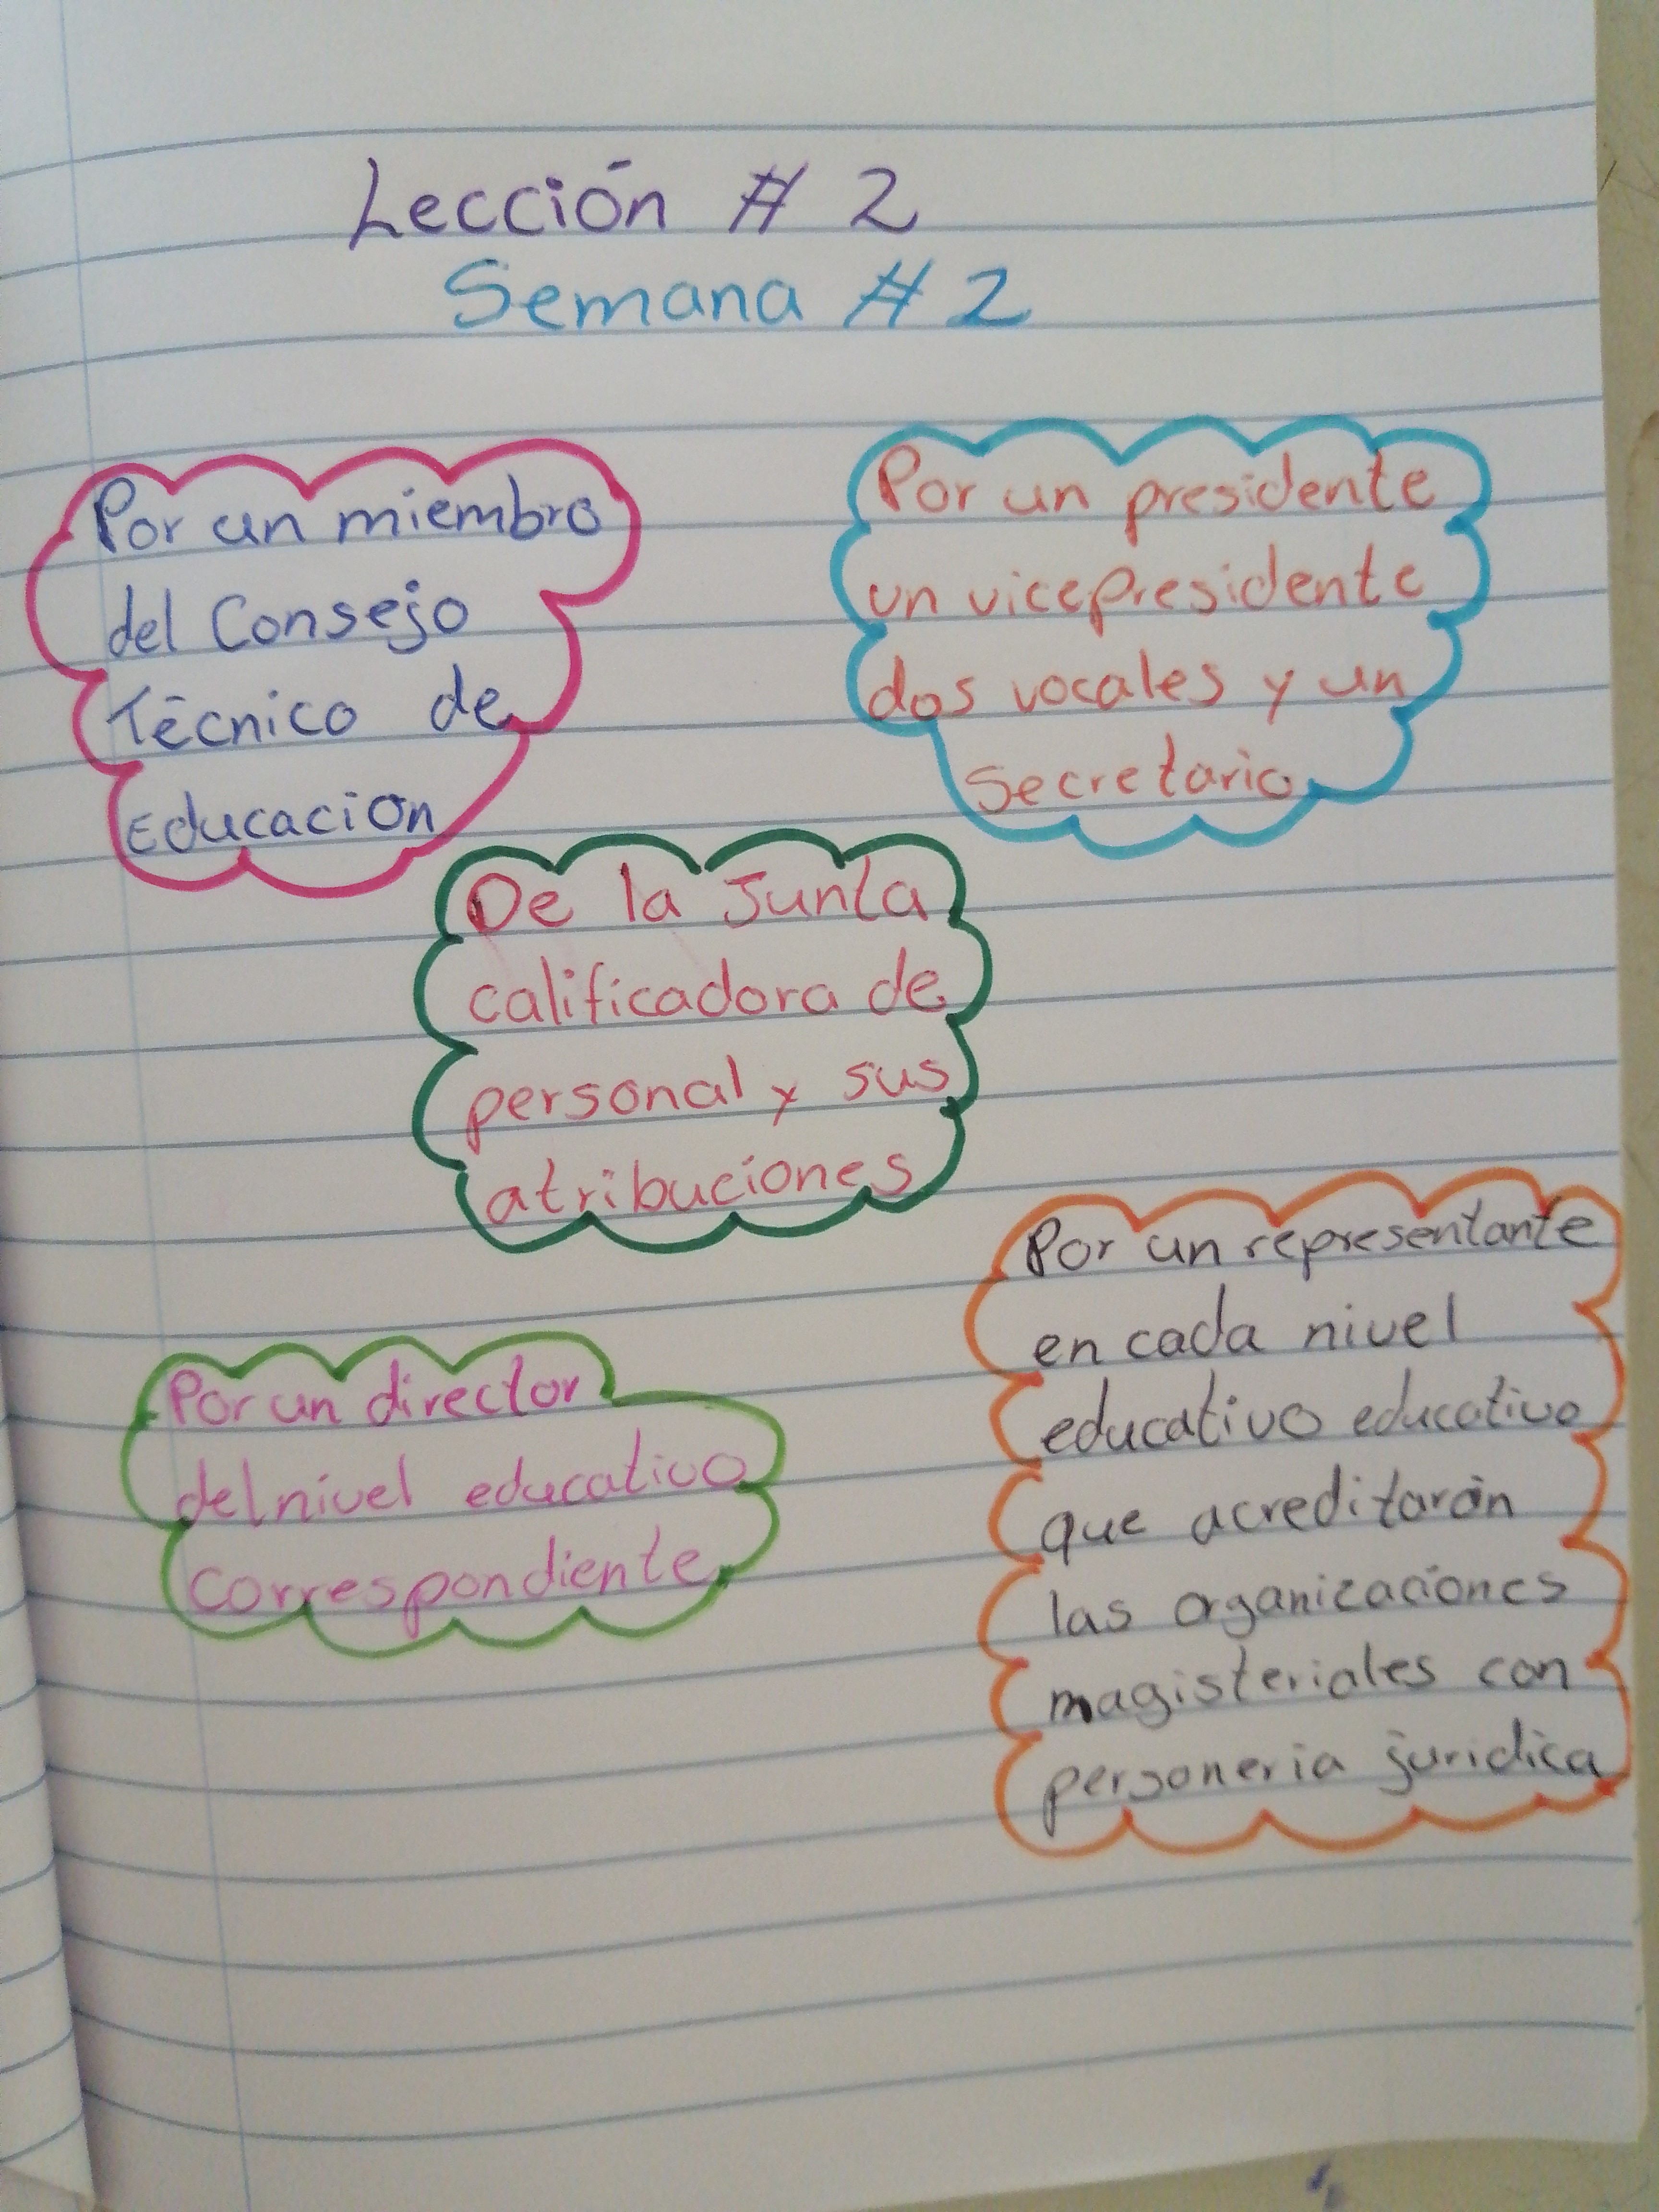 Lección # 2
Semana # 2
Por un miembro
del Consejo
Técnico de
Educación
Por un presidente
un vicepresidente
dos vocales y un
Secretario
De la Junta
calificadora de
personal y sus
atribuciones
Por un director
del nivel educativo
correspondiente
Por un representante
en cada nivel
educativo educativo
que acreditarán
las organizaciones
magisteriales con
personeria juridica